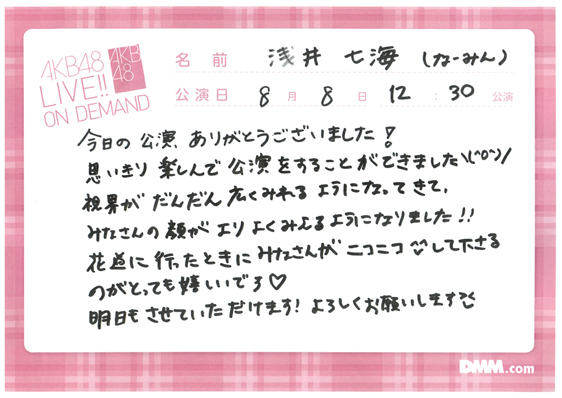 AKB48
LIVE!!
ON DEMAND
AKB
48
名前 浅井七海(なーみん)
公演日 8月8日 12:30公演
今日の公演、ありがとうございました!
思いきり楽しんで公演をすることができました\(^o^)/
視界がだんだん広くみれるようになってきて、
みなさんの顔がよりよくみえるようになりました!!
花道に行ったときにみなさんがニコニコして下さる
のがとっても嬉しいです♡
明日もさせていただけます!よろしくお願いします
DMM.com